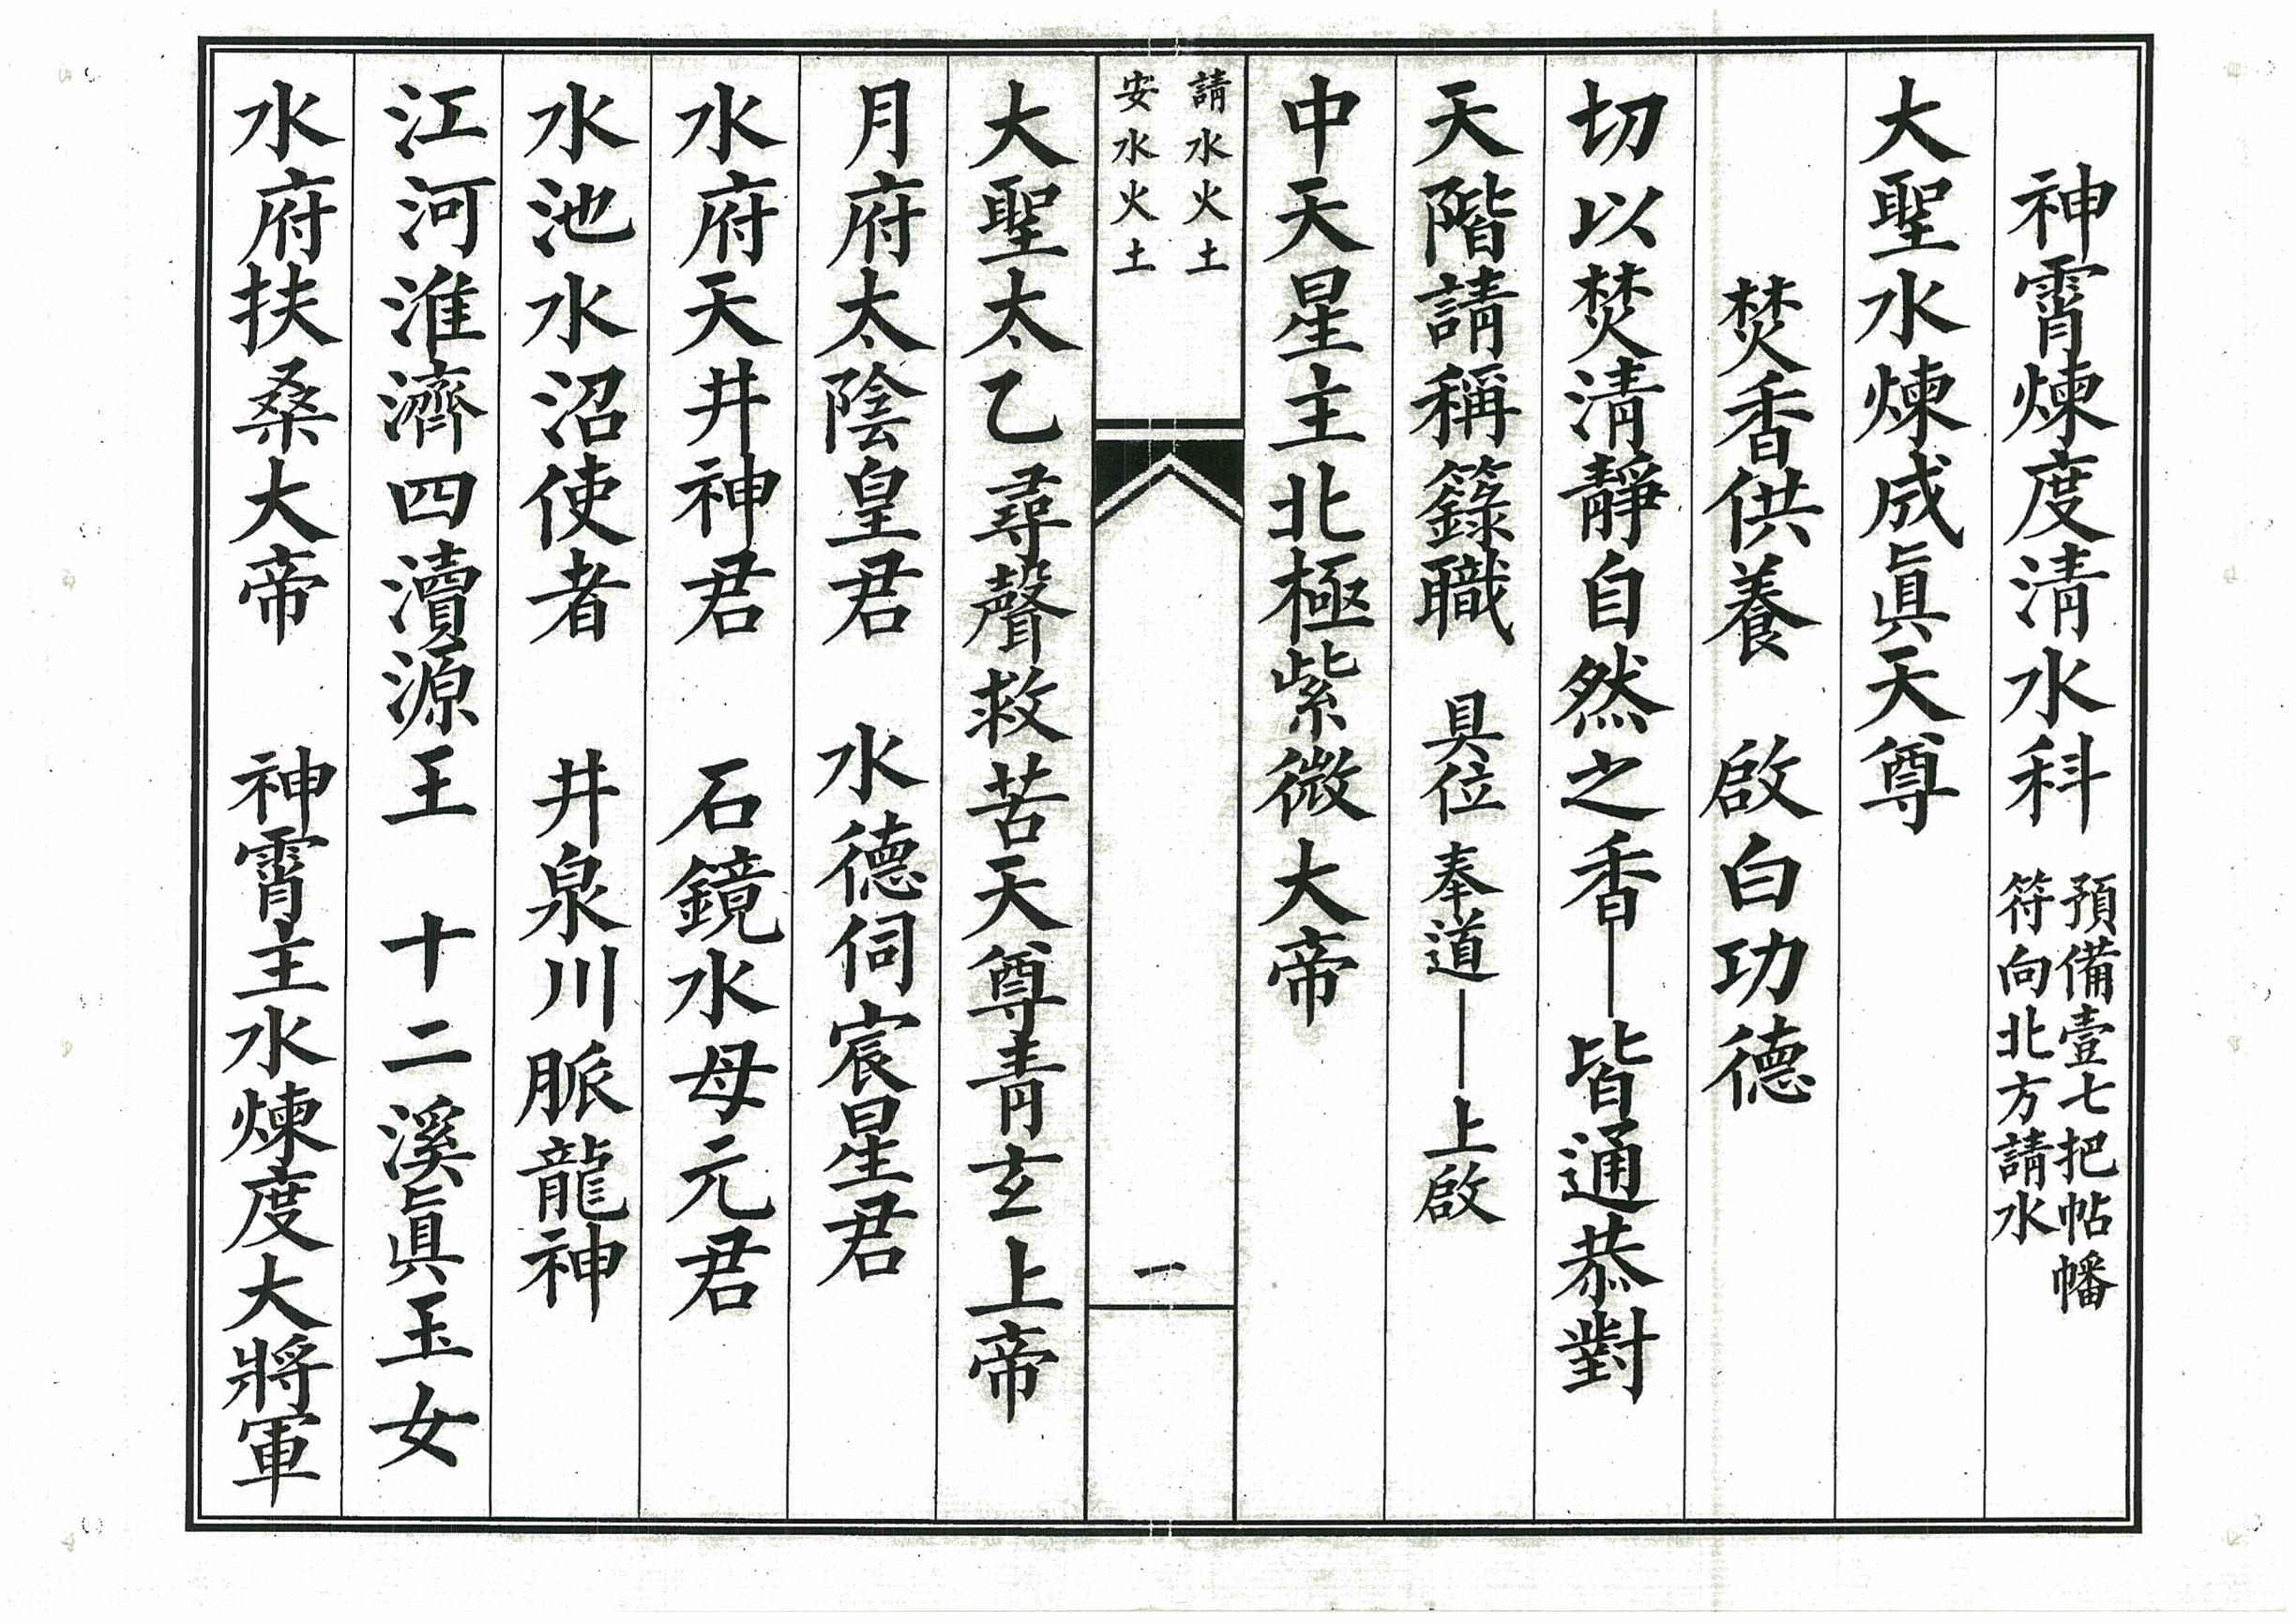 神霄煉度清水科 預備壹七把帖幡
符向北方請水
大聖水煉成眞天尊
焚香供養 啟白功德
切以焚清靜自然之香｜皆通恭對
天階請稱籙職 具位 奉道｜上啟
中天星主北極紫微大帝
請水火土
安水火土
一
大聖太乙尋聲救苦天尊青玄上帝
月府太陰皇君 水德伺宸星君
水府天井神君 石鏡水母元君
水池水沼使者 井泉川脈龍神
江河淮濟四瀆源王 十二溪眞玉女
水府扶桑大帝 神霄主水煉度大將軍